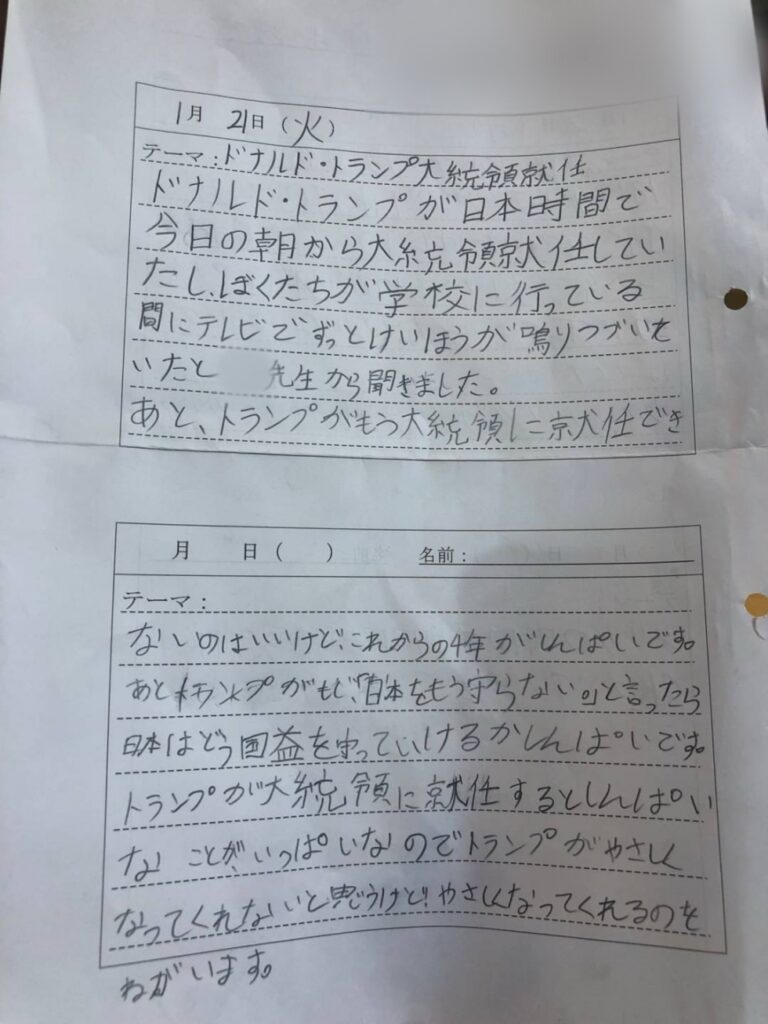 1月 21日(火)
テーマ:ドナルド・トランプ大統領就任
ドナルド・トランプが日本時間で
今日の朝から大統領就任してい
たし、ぼくたちが学校に行っている
間にテレビでずっとけいほうが鳴りつづいて
いたと 先生から聞きました。
あと、トランプがもう大統領に就任でき
月 日( ) 名前:
テーマ:
ないのはいいけど、これからの4年がしんぱいです。
あと トランプがもし、「日本をもう守らない。」と言ったら
日本はどう国益を守っていけるかしんぱいです。
トランプが大統領に就任するとしんぱい
な ことが、いっぱいなのでトランプがやさしく
なってくれないと思うけど、やさしくなってくれるのを
ねがいます。